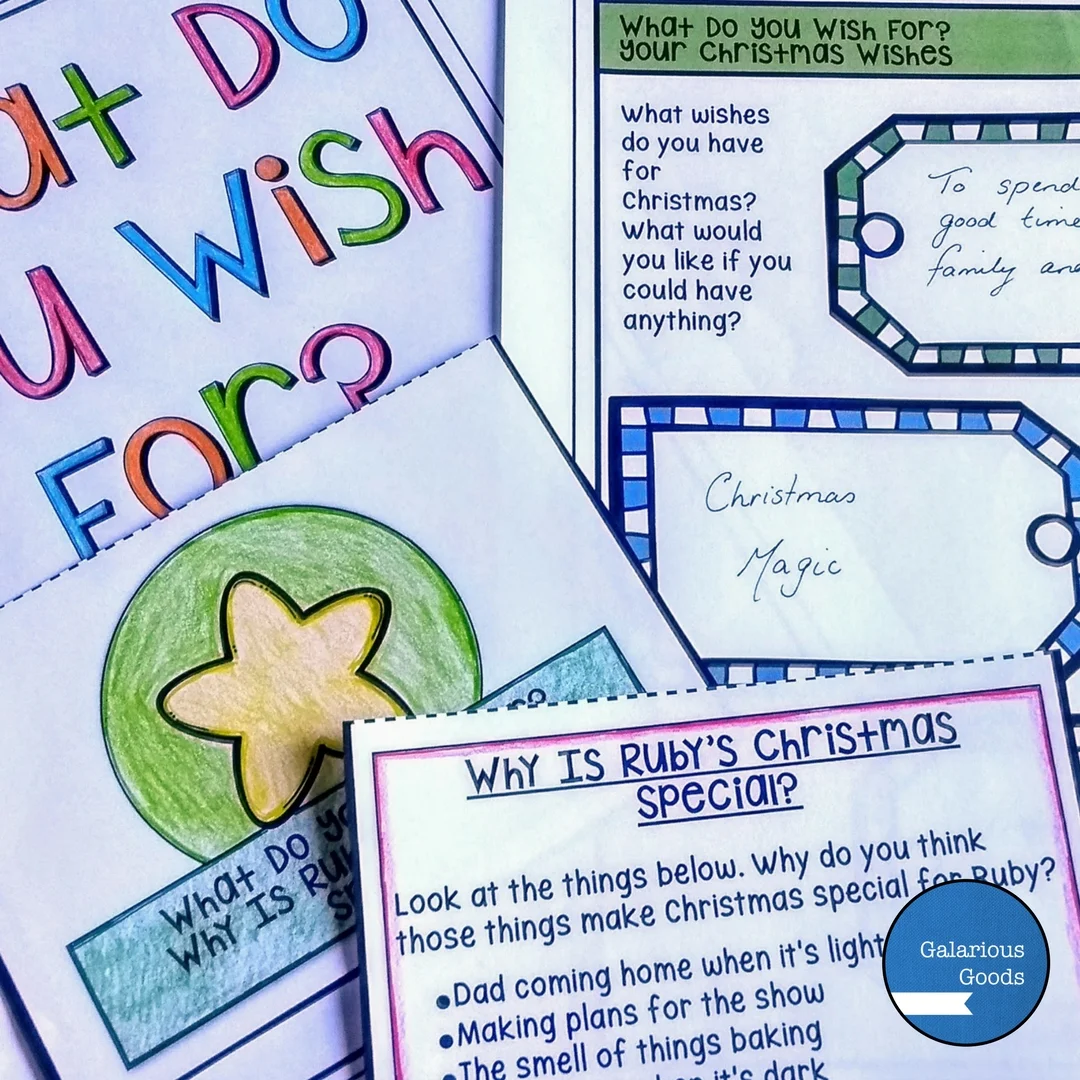 at Do
u Wish
For?
What Do You Wish For?
Your Christmas Wishes
What wishes
do you have
for
Christmas?
What would
you like if you
could have
anything?
To spend
good time
family and
Christmas
Magic
What Do Yo
Why Is Ru
S
s?
Why Is Ruby's Christmas
Special?
Look at the things below. Why do you think
those things make Christmas special for Ruby?
•Dad coming home when it's light
•Making plans for the show
•The smell of things baking
it's dark
Galarious
Goods